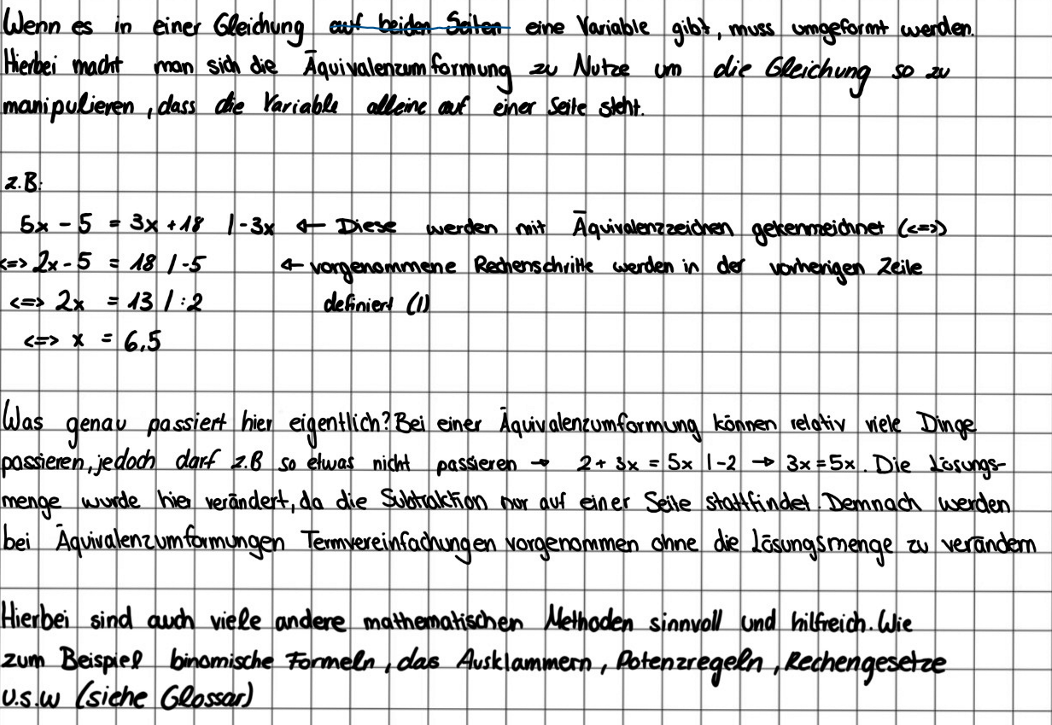 Wenn es in einer Gleichung auf beiden Seiten eine Variable gibt, muss umgeformt werden.
Hierbei macht man sich die Äquivalenzumformung zu Nutze um die Gleichung so zu
manipulieren, dass die Variable alleine auf einer Seite steht.
z.B:
5x - 5 = 3x + 18 |-3x ← Diese werden mit Äquivalenzzeichen gekennzeichnet (<=>)
<=> 2x - 5 = 18 | -5 ← vorgenommene Rechenschritte werden in der vorherigen Zeile
<=> 2x = 13 | :2 definiert (|)
<=> x = 6,5
Was genau passiert hier eigentlich? Bei einer Äquivalenzumformung können relativ viele Dinge
passieren, jedoch darf z.B so etwas nicht passieren → 2 + 3x = 5x |-2 → 3x = 5x. Die Lösungs-
menge wurde hier verändert, da die Subtraktion nur auf einer Seite stattfindet. Demnach werden
bei Äquivalenzumformungen Termvereinfachungen vorgenommen ohne die Lösungsmenge zu verändern
Hierbei sind auch viele andere mathematischen Methoden sinnvoll und hilfreich. Wie
zum Beispiel binomische Formeln, das Ausklammern, Potenzregeln, Rechengesetze
u.s.w (siehe Glossar)